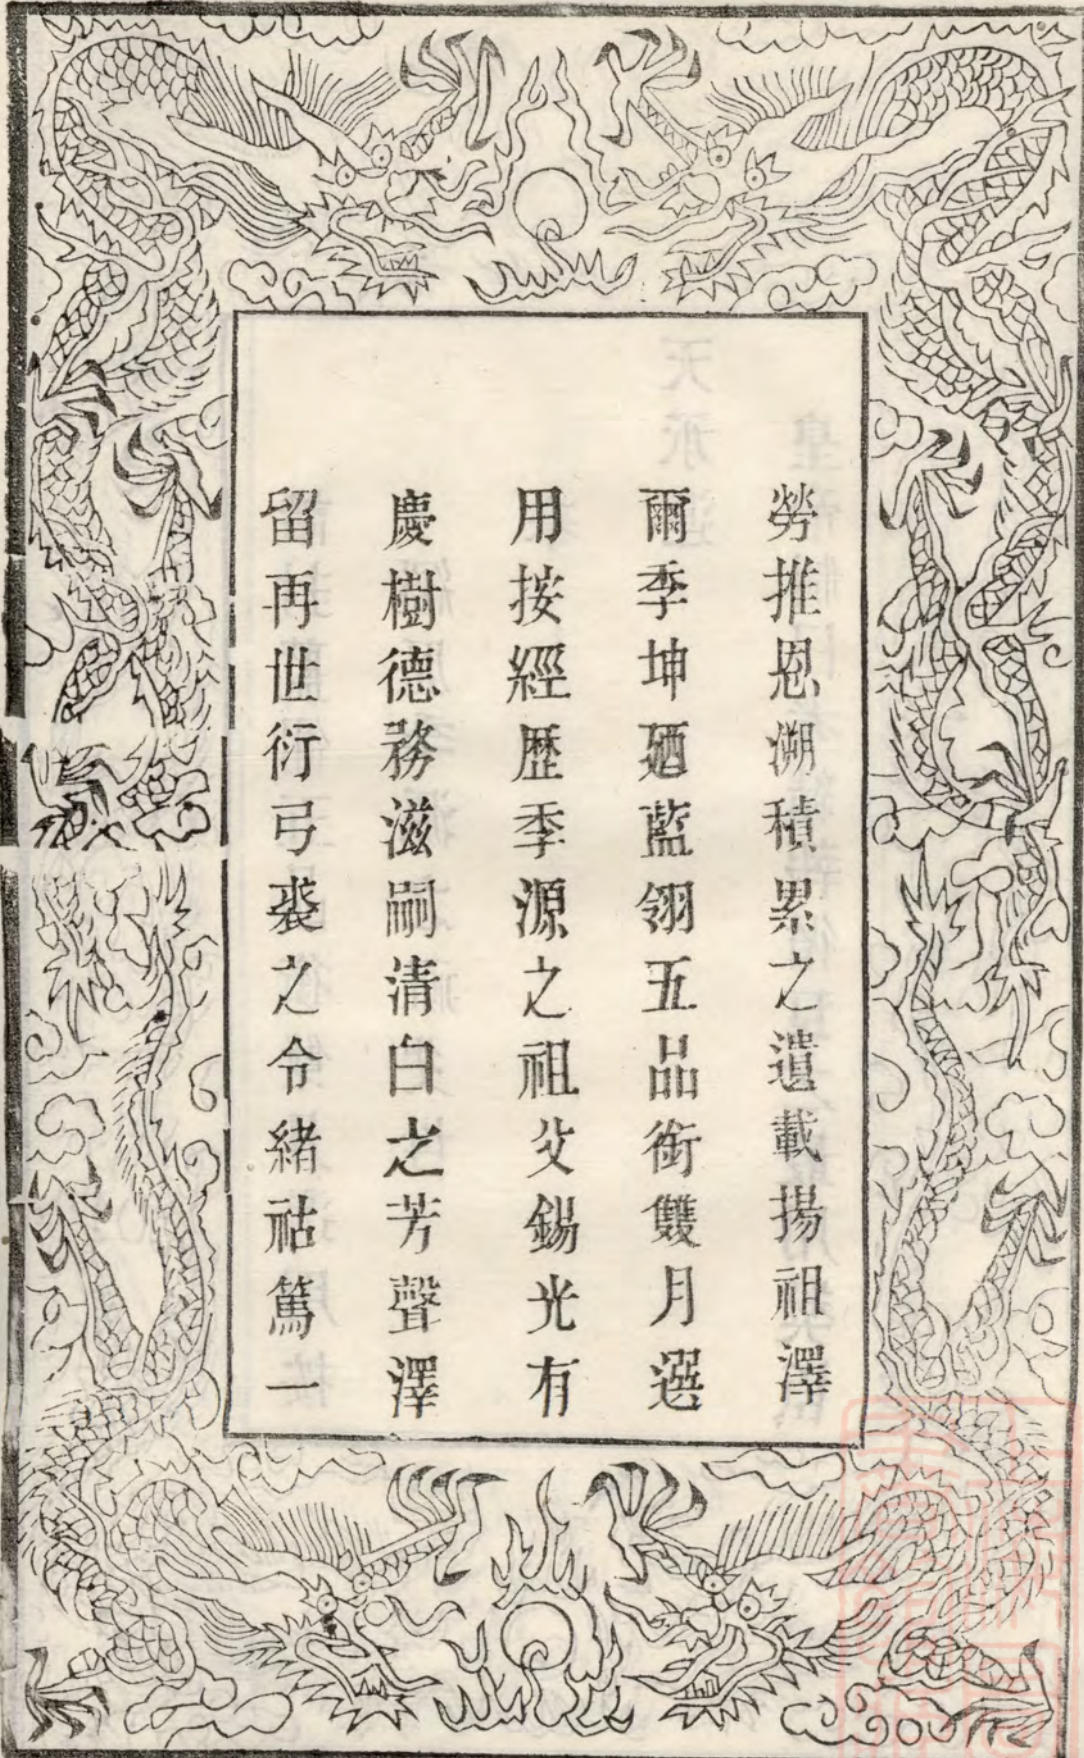 勞推恩溯積累之遺載揚祖澤
爾季坤廼藍翎五品銜雙月選
用按經歴季源之祖父錫光有
慶樹德務滋嗣清白之芳聲澤
留再世衍弓裘之令緒祜篤一